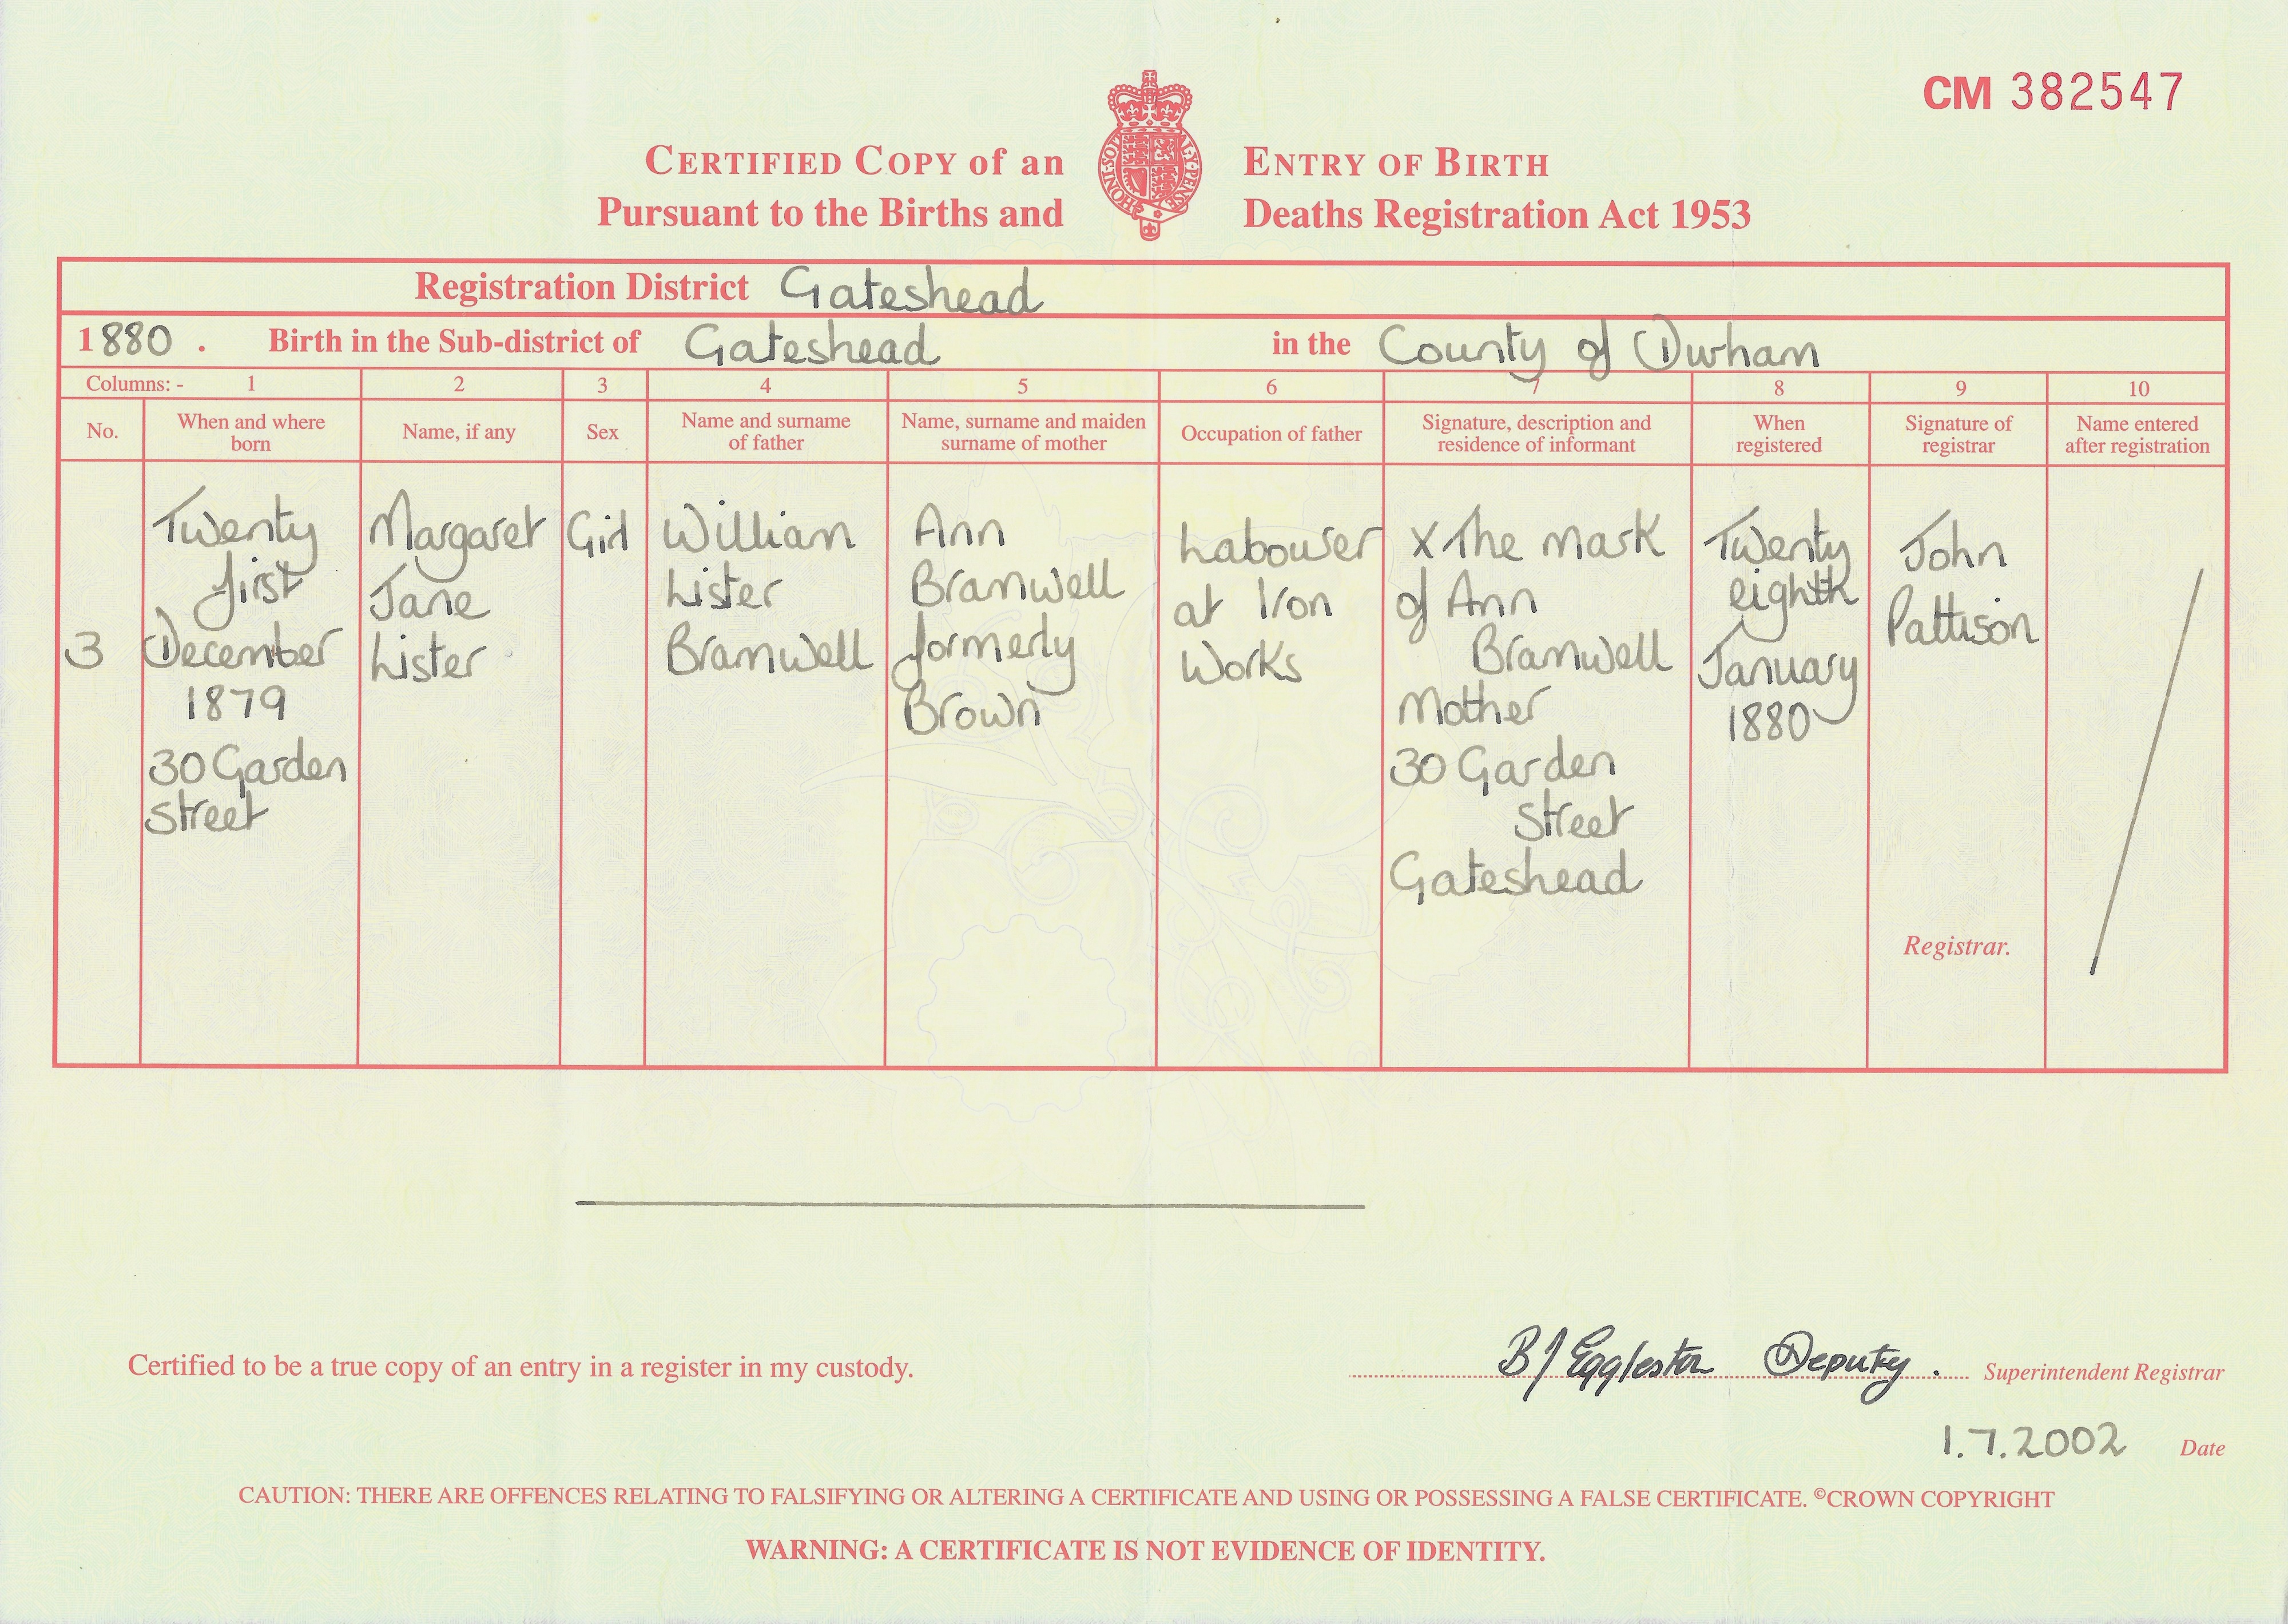 CM 382547
CERTIFIED COPY of an ENTRY OF BIRTH
Pursuant to the Births and Deaths Registration Act 1953
HONI·SOIT AL·Y·PENSE
Registration District Gateshead
1880 . Birth in the Sub-district of Gateshead in the County of Durham
Columns: - 1 2 3 4 5 6 7 8 9 10
No.
When and where
born
Name, if any
Sex
Name and surname
of father
Name, surname and maiden
surname of mother
Occupation of father
Signature, description and
residence of informant
When
registered
Signature of
registrar
Name entered
after registration
3
Twenty
first
December
1879
30 Garden
Street
Margaret
Jane
Lister
Girl
William
Lister
Bramwell
Ann
Bramwell
formerly
Brown
Labourer
at Iron
Works
X The mark
of Ann
Bramwell
Mother
30 Garden
Street
Gateshead
Twenty
eighth
January
1880
John
Pattison
Registrar.
Certified to be a true copy of an entry in a register in my custody.
B J Eggleston Deputy . Superintendent Registrar
1.7.2002 Date
CAUTION: THERE ARE OFFENCES RELATING TO FALSIFYING OR ALTERING A CERTIFICATE AND USING OR POSSESSING A FALSE CERTIFICATE. ©CROWN COPYRIGHT
WARNING: A CERTIFICATE IS NOT EVIDENCE OF IDENTITY.